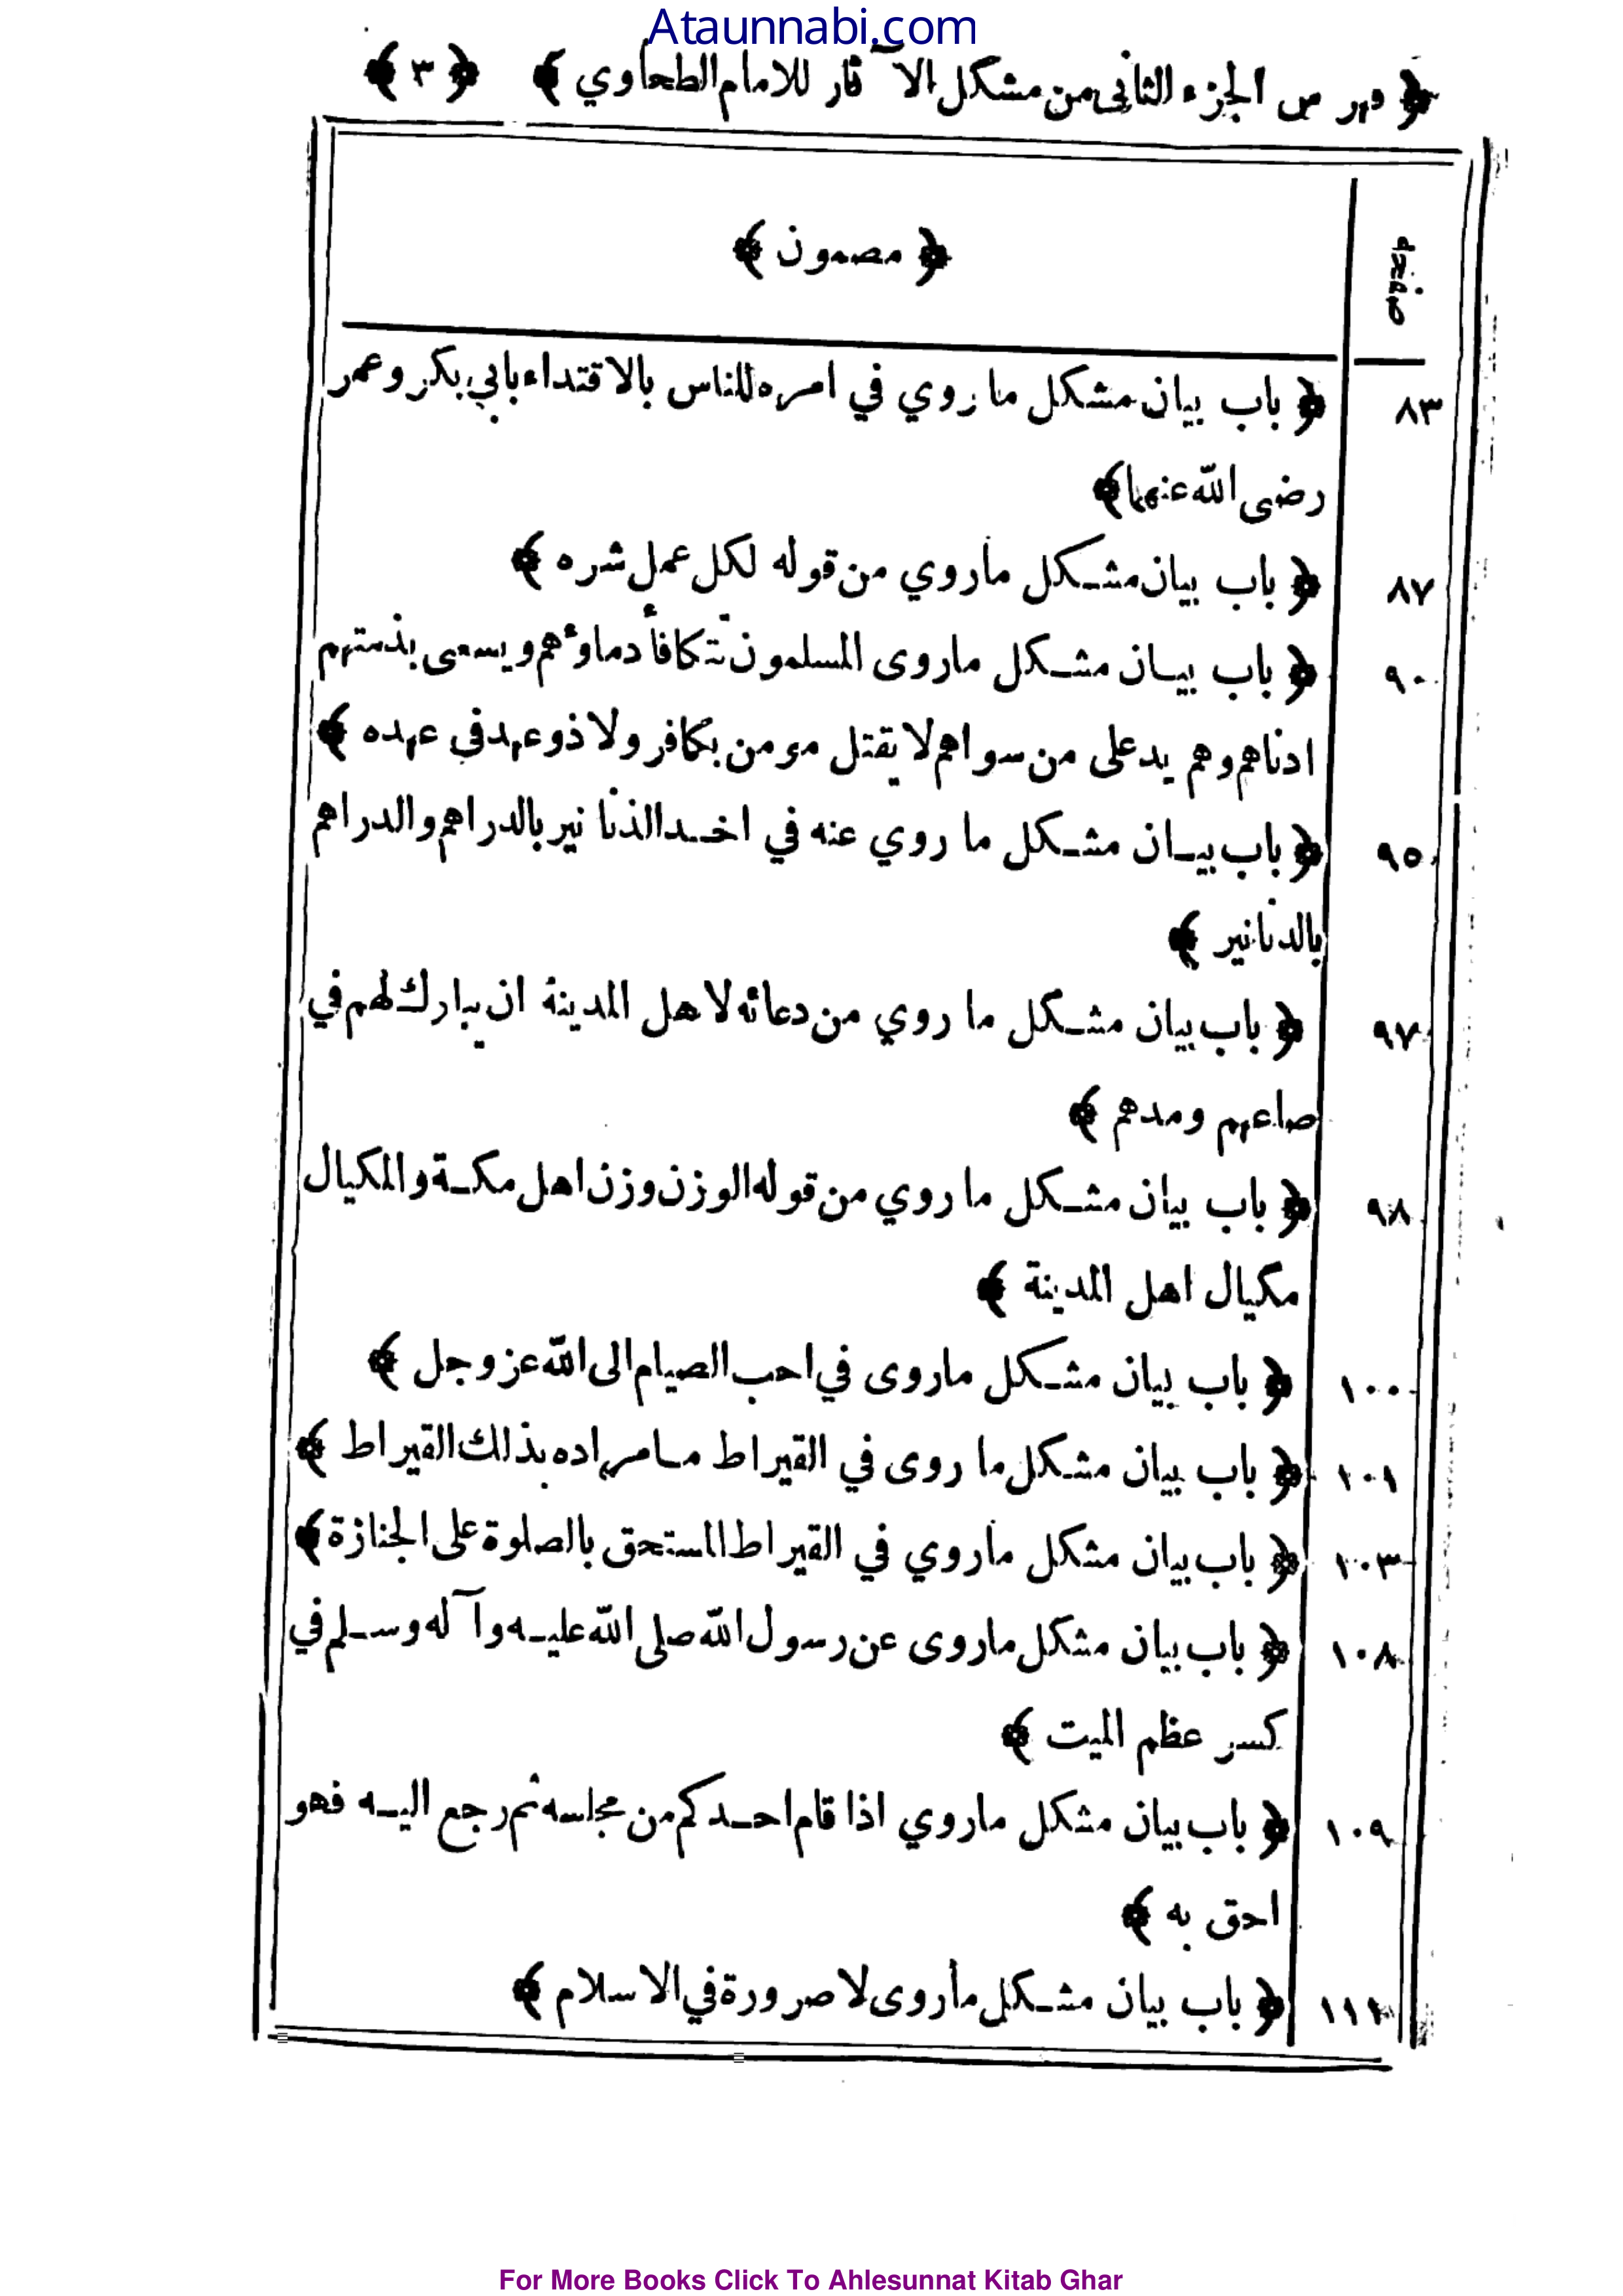 Ataunnabi.com
﴿ فهرس الجزء الثانى من مشكل الآثار للامام الطحاوي ﴾ ﴿ ٣ ﴾
صفحه ﴿ مضمون ﴾
٨٣ ﴿ باب بيان مشكل ما روي في امره للناس بالاقتداء بابي بكر وعمر
رضى الله عنهما ﴾
٨٧ ﴿ باب بيان مشكل ماروي من قوله لكل عمل شره ﴾
٩٠ ﴿ باب بيان مشكل ماروى المسلمون تتكافأ دماؤهم ويسعى بذمتهم
ادناهم وهم يد على من سواهم لا يقتل مومن بكافر ولا ذو عهد في عهده ﴾
٩٥ ﴿ باب بيان مشكل ما روي عنه في اخذ الدنانير بالدراهم والدراهم
بالدنانير ﴾
٩٧ ﴿ باب بيان مشكل ما روي من دعائه لاهل المدينة ان يبارك لهم في
صاعهم ومدهم ﴾
٩٨ ﴿ باب بيان مشكل ما روي من قوله الوزن وزن اهل مكة والمكيال
مكيال اهل المدينة ﴾
١٠٠ ﴿ باب بيان مشكل ماروى في احب الصيام الى الله عز وجل ﴾
١٠١ ﴿ باب بيان مشكل ما روى في القيراط مامراده بذلك القيراط ﴾
١٠٣ ﴿ باب بيان مشكل ماروي في القيراط المستحق بالصلوة على الجنازة ﴾
١٠٨ ﴿ باب بيان مشكل ماروى عن رسول الله صلى الله عليه وآله وسلم في
كسر عظم الميت ﴾
١٠٩ ﴿ باب بيان مشكل ماروي اذا قام احدكم من مجلسه ثم رجع اليه فهو
احق به ﴾
١١١ ﴿ باب بيان مشكل ماروى لا صرورة في الاسلام ﴾
For More Books Click To Ahlesunnat Kitab Ghar